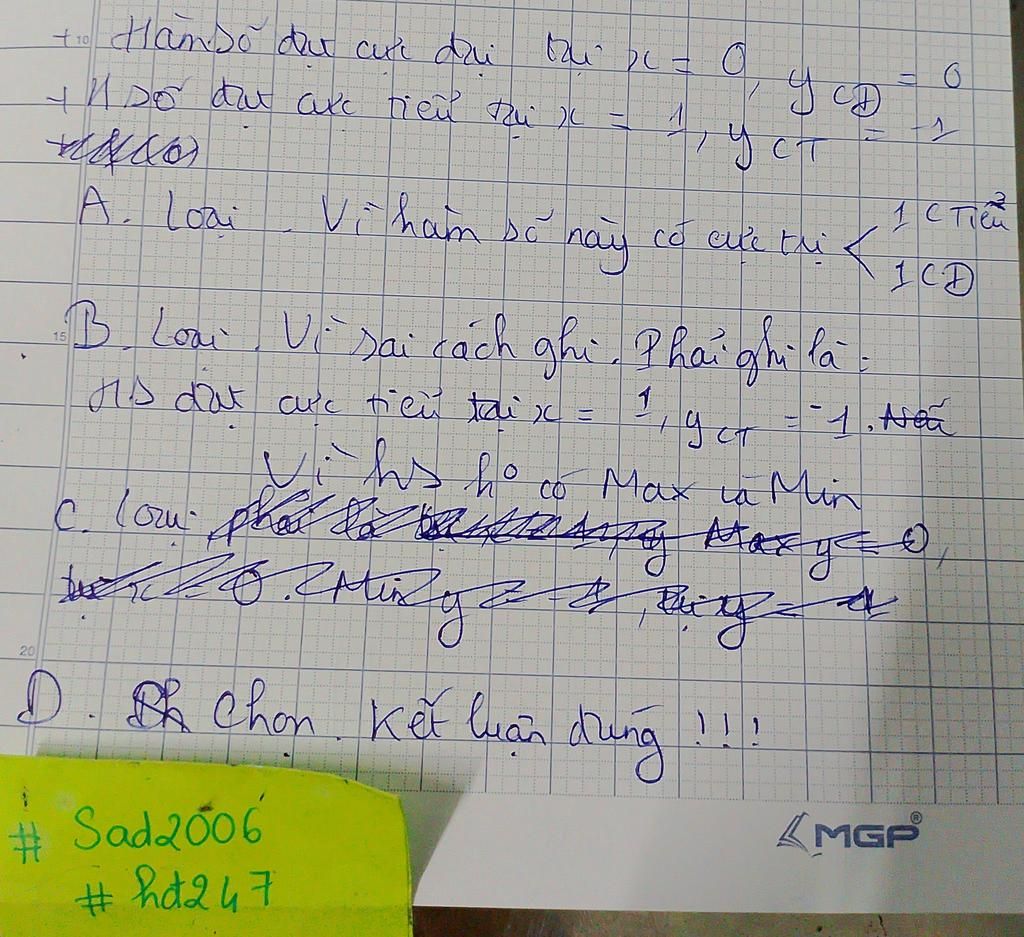 + Hàm số đạt cực đại tại x = 0, yCĐ = 0
+ H số đạt cực tiểu tại x = 1, yCT = -1
A. Loại. Vì hàm số này có cực trị < 1 C Tiểu
1 CĐ
15
B. Loại. Vì sai cách ghi. Phải ghi là:
HS đạt cực tiểu tại x = 1, yCT = -1.
Vì hs ko có Max và Min
C. Loại
20
D. Chọn. Kết luận đúng !!!
MGP®
# Sad2006
# hđ247